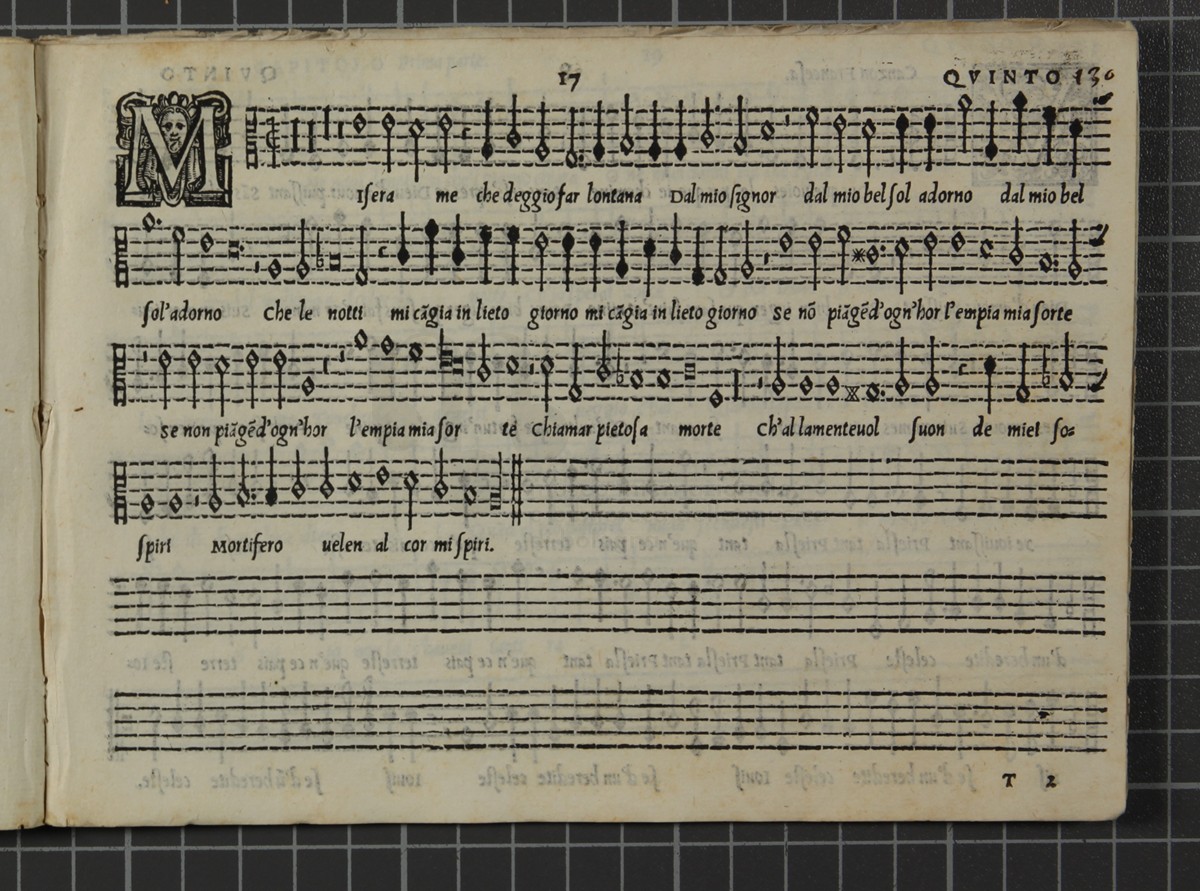 17 QVINTO 130
MIſera me che deggio far lontana Dal mio ſignor dal mio bel ſol adorno dal mio bel
ſol'adorno Che le notti mi cãgia in lieto giorno mi cãgia in lieto giorno Se nõ piãgẽd'ogn'hor l'empia mia ſorte
Se non piãgẽd'ogn'hor l'empia mia ſor te Chiamar pietoſa morte Ch'al lamenteuol ſuon de miei ſo=
ſpiri Mortifero uelen al cor mi ſpiri.
T 2